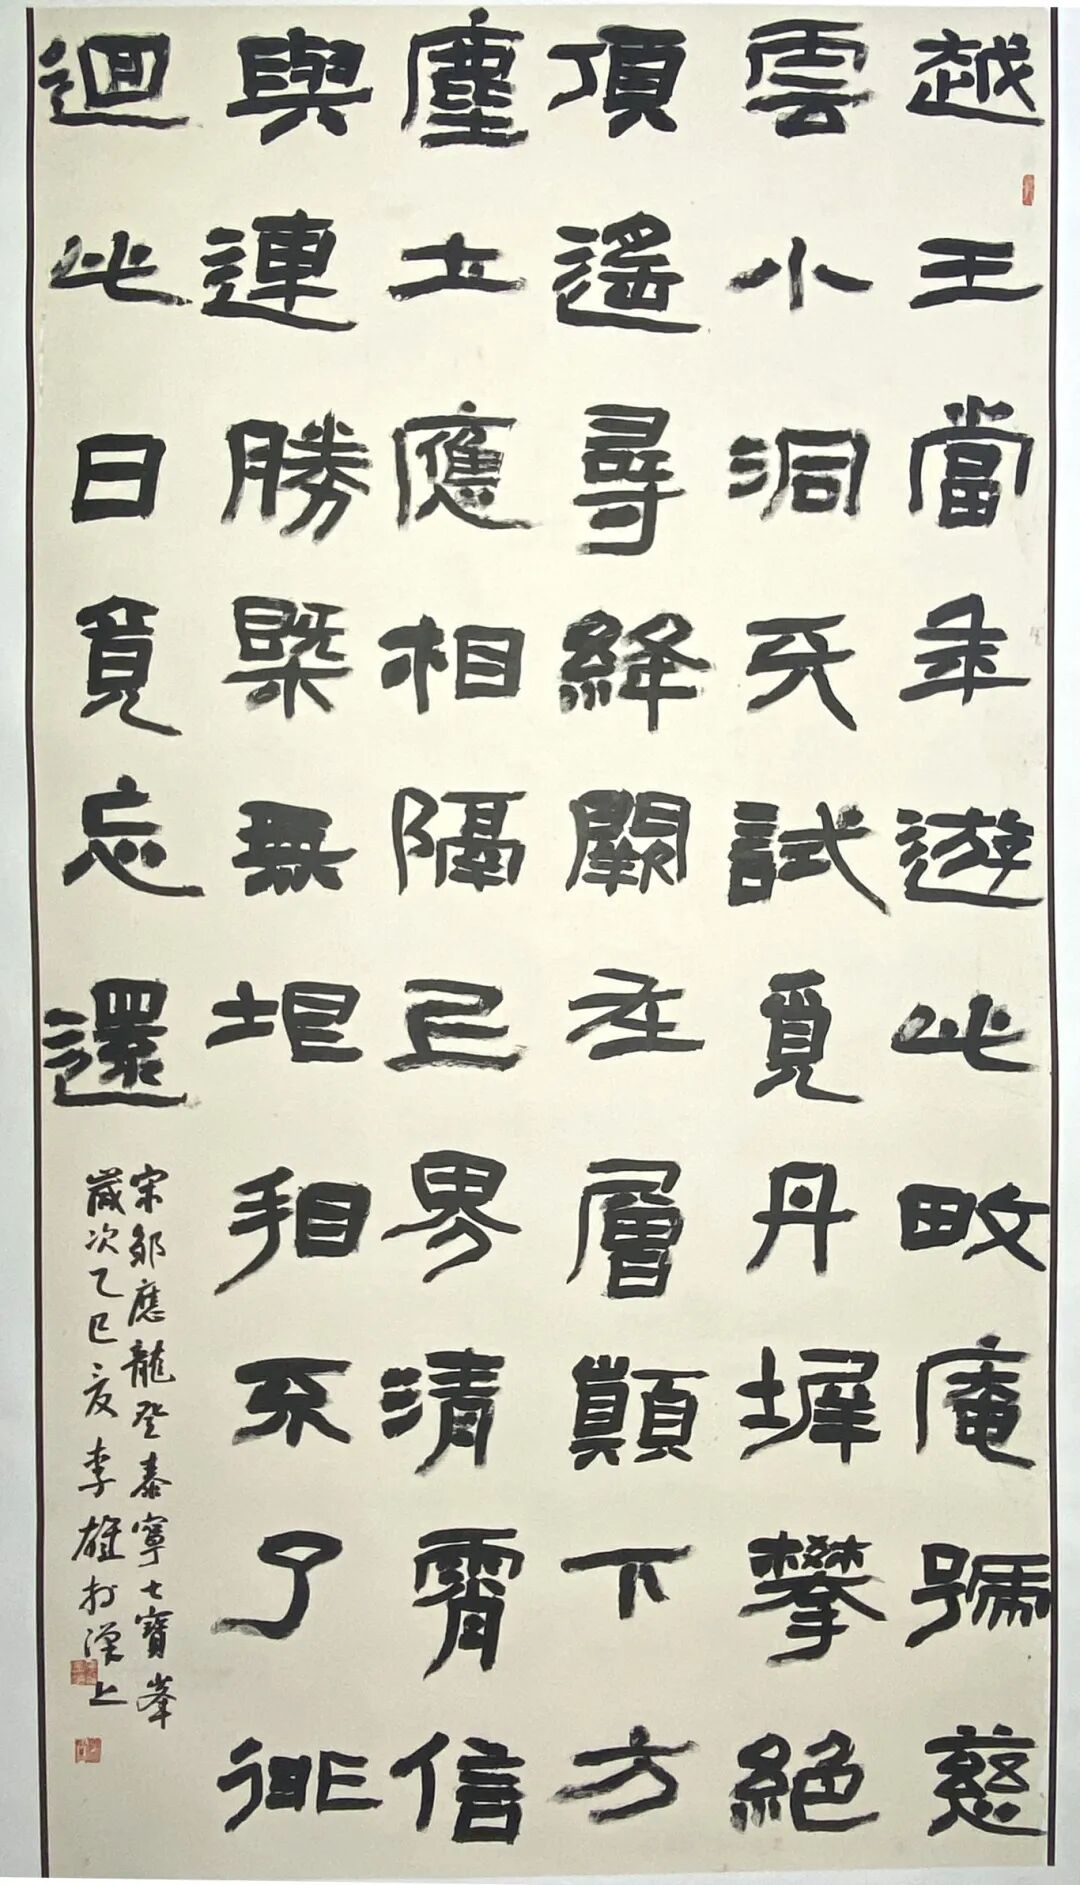 越王當年遊此畋庵號慈
雲小洞天試覓丹墀攀絕
頂遙尋絳闕在層顛下方
塵土應相隔上界清霄信
與連勝槩無垠看不了徘
迴此日竟忘還
宋鄒應龍登泰寧七寶峯
歲次乙巳夏李雄於漢上